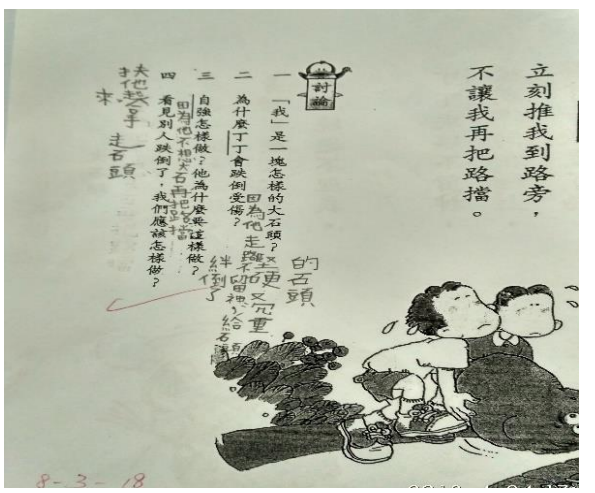 立刻推我到路旁，
不讓我再把路擋。
討論
一 「我」是一塊怎樣的大石頭？
堅硬又沉重
的石頭
二 為什麼丁丁會跌倒受傷？
因為他走路不留神，給石頭
絆倒了
三 自強怎樣做？他為什麼要這樣做？
因為他不想大石再把路擋
四 看見別人跌倒了，我們應該怎樣做？
扶他起
來
走石頭
8-3-18